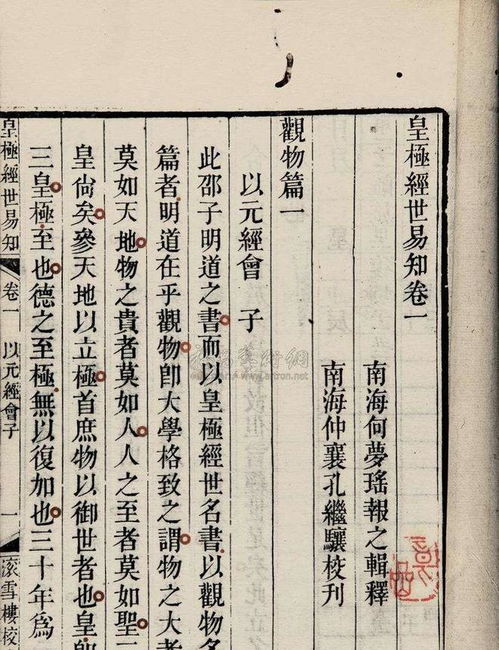 皇極經世易知卷一
南海何夢瑤報之輯釋
南海仲襄孔繼驤校刊
觀物篇一
以元經會　子
此邵子明道之書而以皇極經世名書以觀物名
篇者明道在乎觀物卽大學格致之謂物之大者
莫如天地物之貴者莫如人人之至者莫如聖
皇尙矣參天地以立極首庶物以御世者也皇卽
三皇極至也德之至極無以復加也三十年爲
皇極經世易知
卷一
以元經會子
一
滾雪樓校